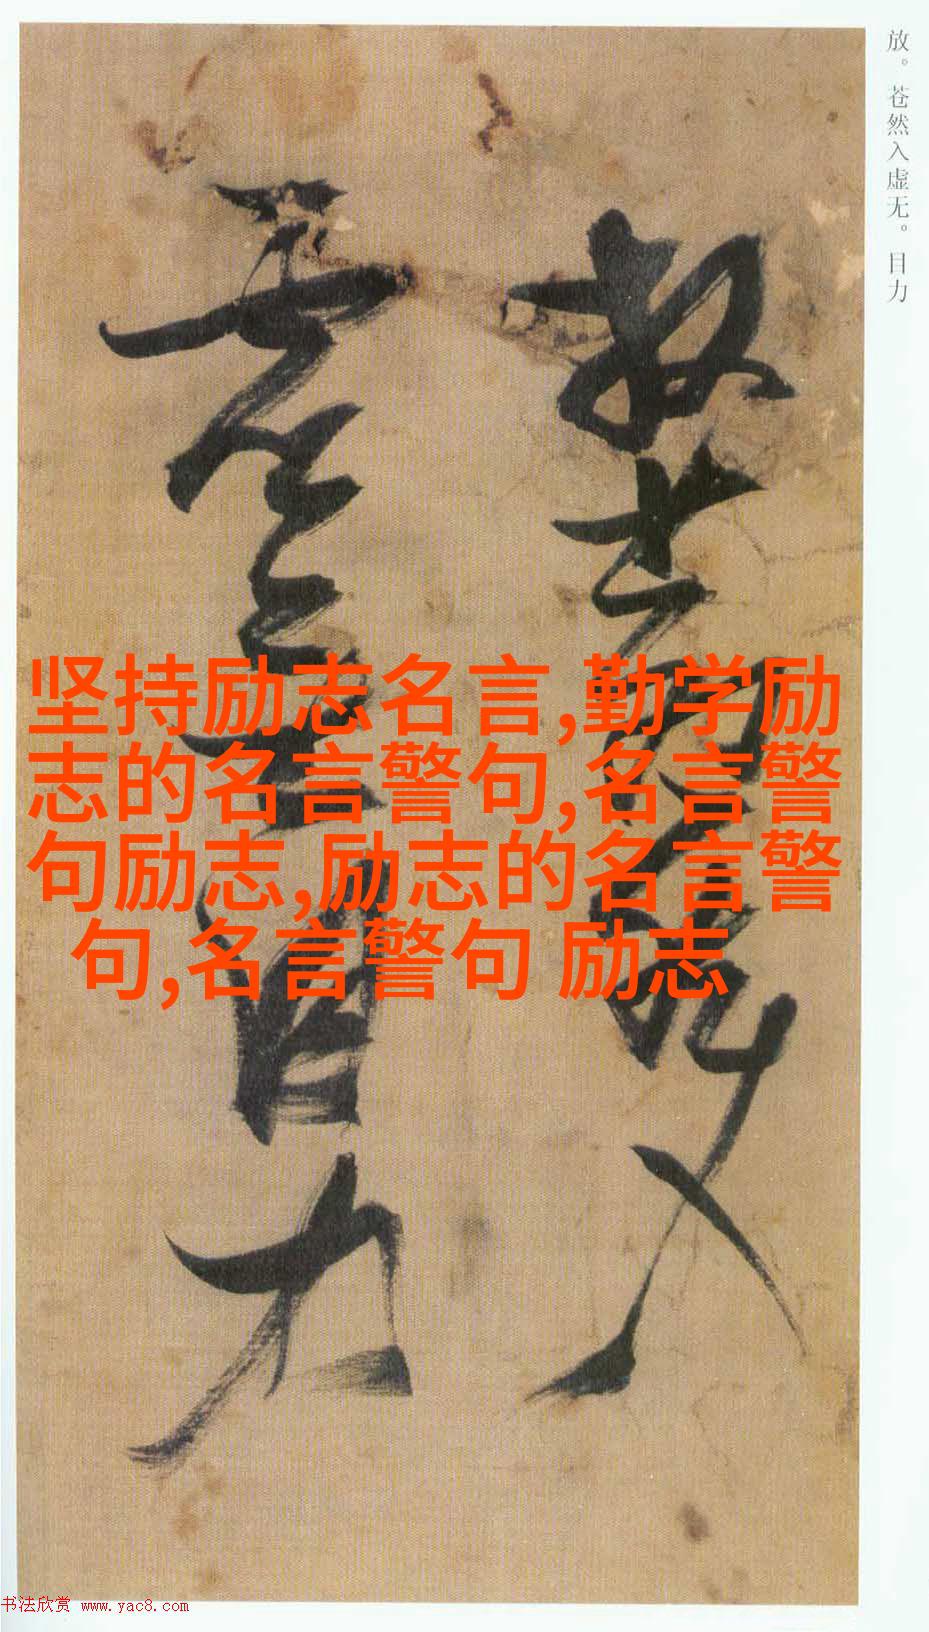 放。苍然入虚无。目力
放苍然入
虚无目力
坚持励志名言,勤学励
志的名言警句,名言警
句励志,励志的名言警
句,名言警句 励志
书法欣赏 www.yac8.com